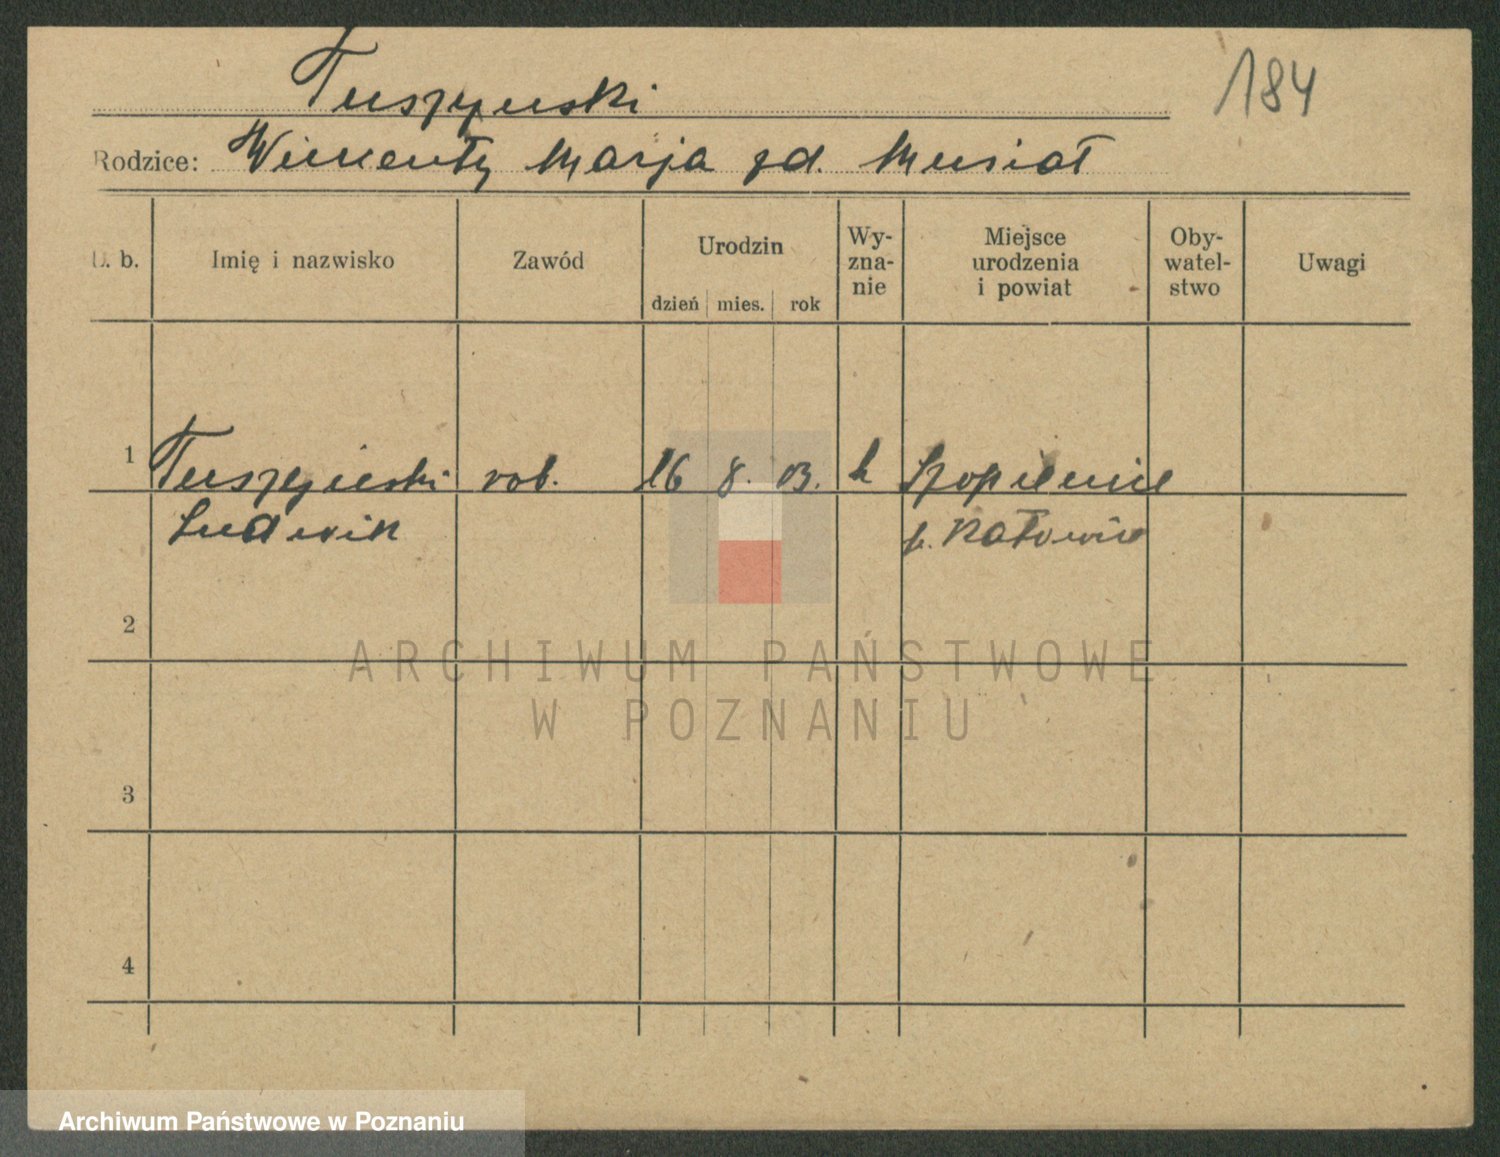 Tuszyński
184
Rodzice: Wincenty Marja zd. Musiał
L. b.
Imię i nazwisko
Zawód
Urodzin
dzień mies. rok
Wy-
zna-
nie
Miejsce
urodzenia
i powiat
Oby-
watel-
stwo
Uwagi
1 Tuszyński rob. 16 8. 03. k Szopienice
Ludwik p. Katowice
2
ARCHIWUM PAŃSTWOWE
W POZNANIU
3
4
Archiwum Państwowe w Poznaniu